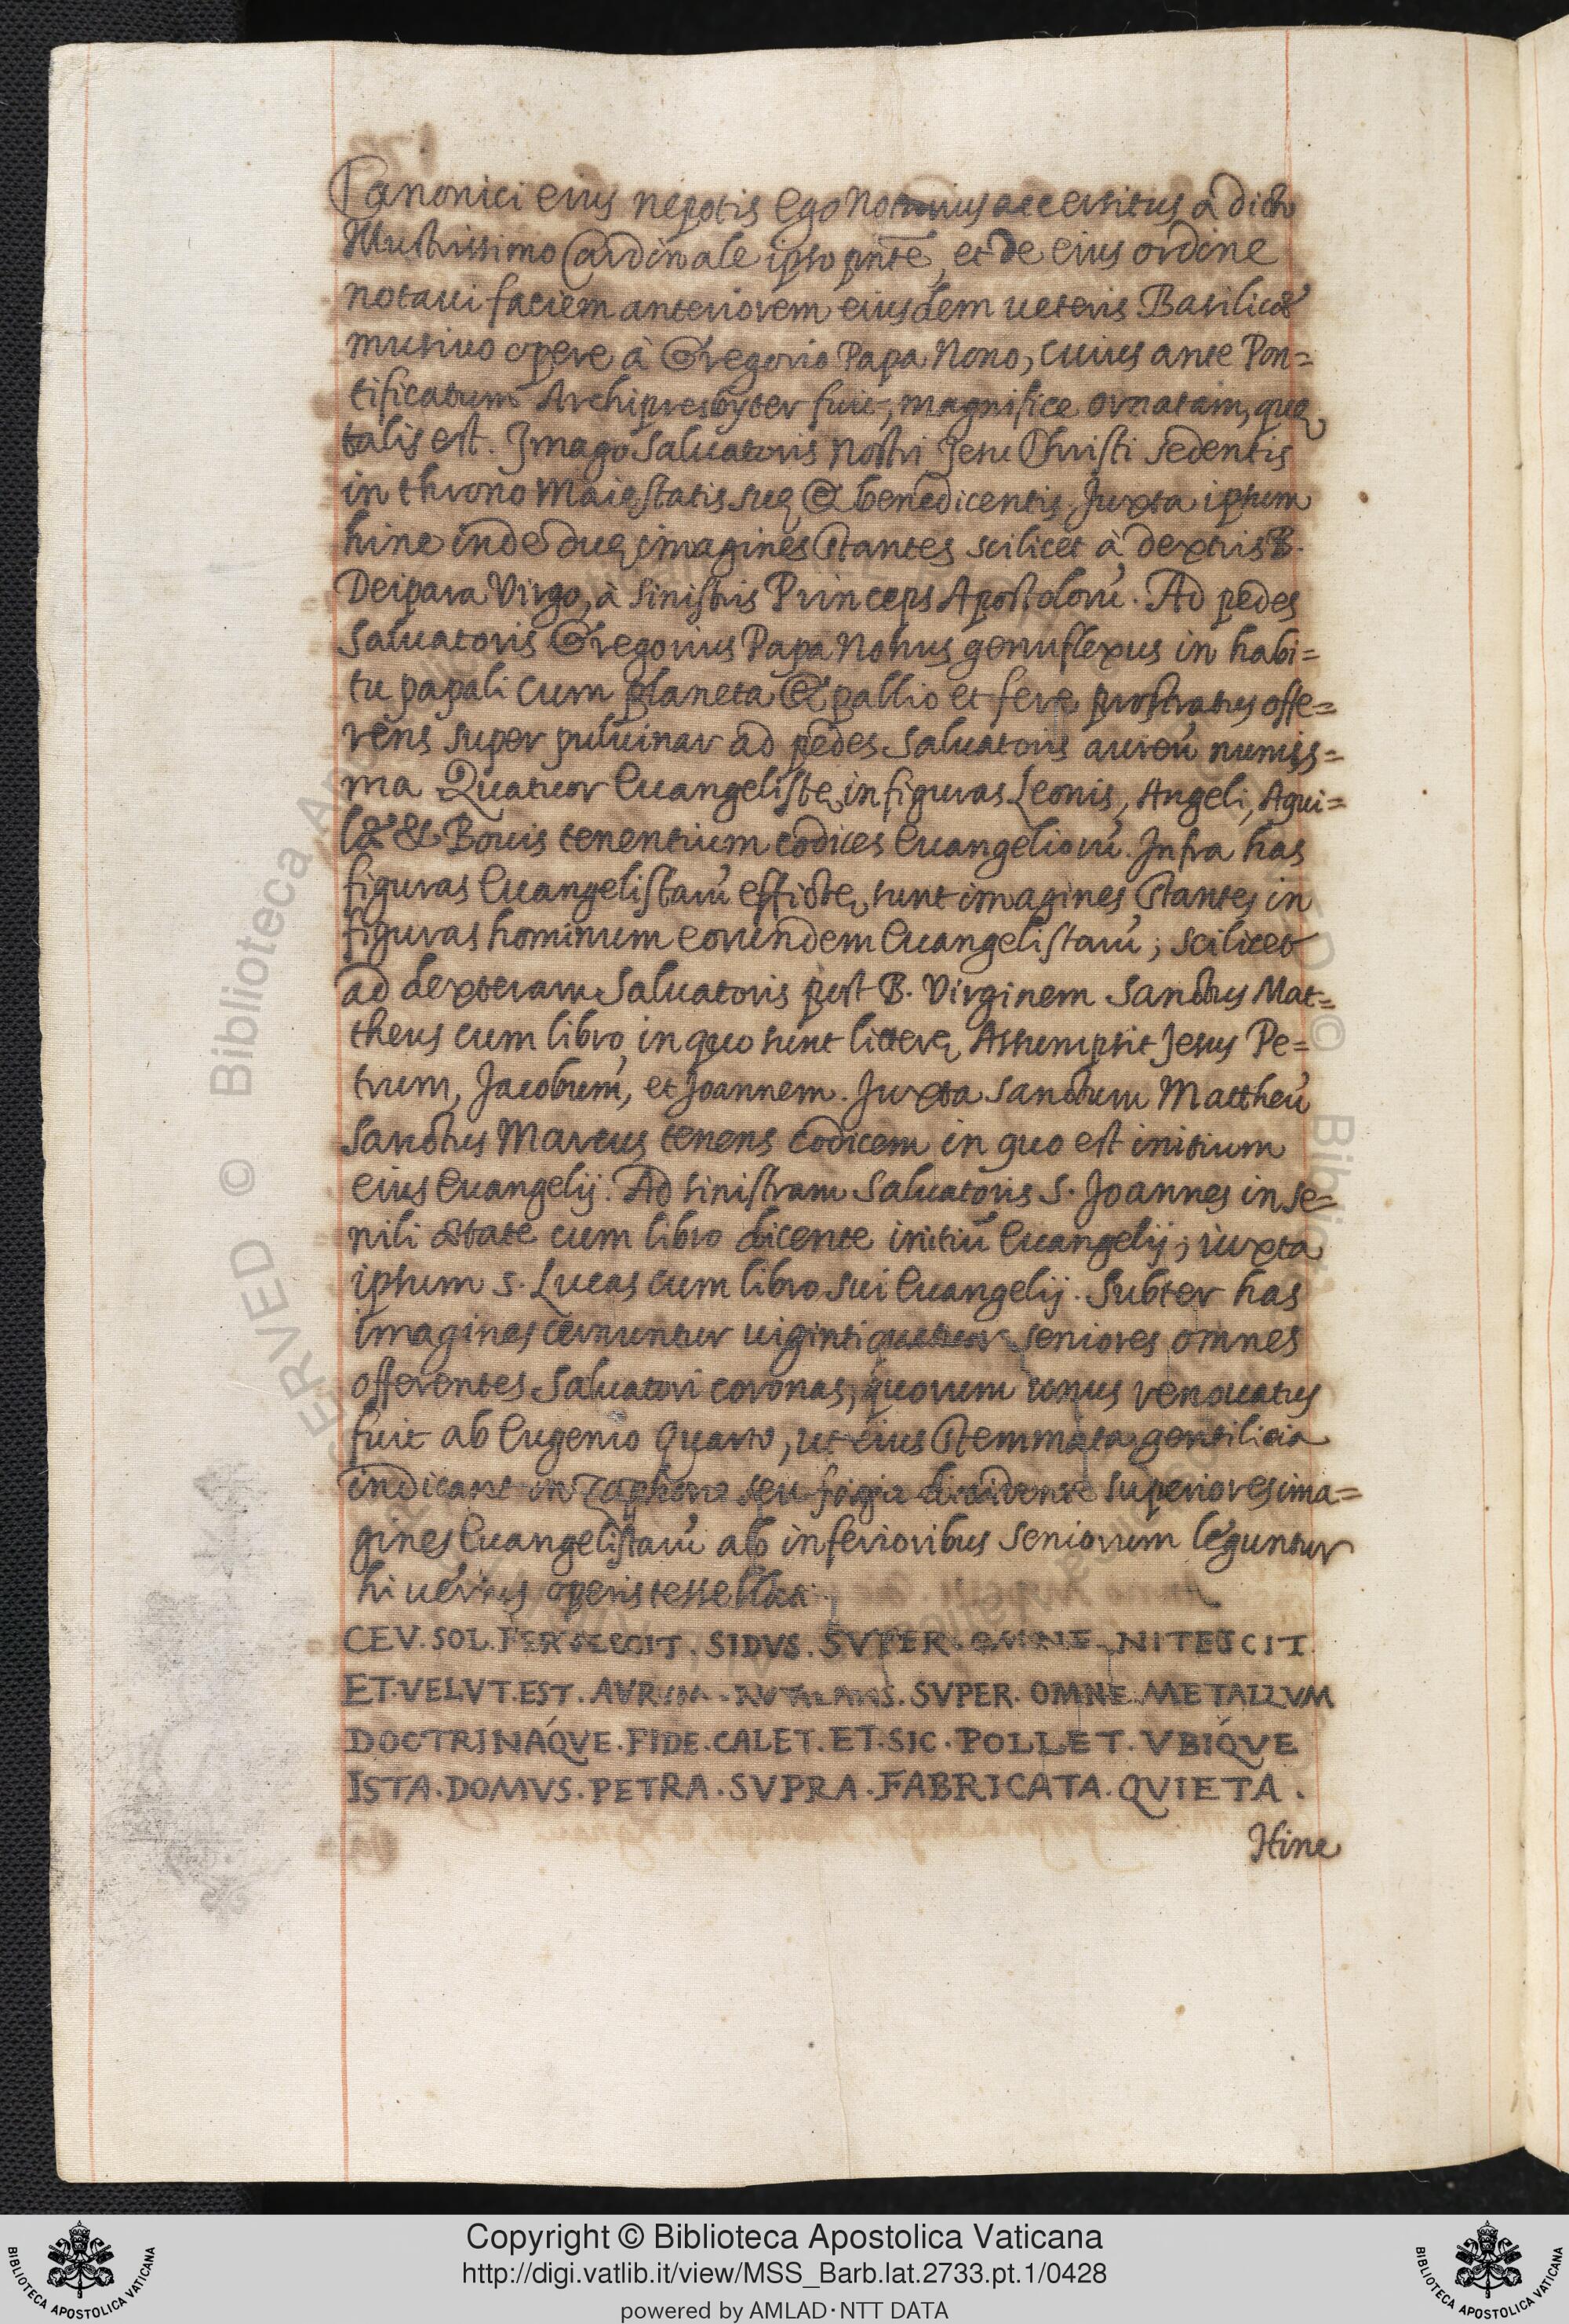 Canonici eius nepotis ego Notarius accersitus a dicto
Illustrissimo Cardinale ipso pnte, et de eius ordine
notaui faciem anteriorem eiusdem ueteris Basilicæ
musiuo opere à Gregorio Papa Nono, cuius ante Pon=
tificatum Archipresbyter fuit, magnifice ornatam, quę
talis est. Imago Saluatoris Nostri Jesu Christi sedentis
in throno Maiestatis suę & benedicentis, Juxta ipsum
hinc inde duę imagines stantes scilicet à dextris B.
Deipara Virgo, à sinistris Princeps Apostolorū. Ad pedes
Saluatoris Gregorius Papa Nonus genuflexus in habi=
tu papali cum planeta & pallio et fere prostratus offe=
rens super puluinar ad pedes Saluatoris aureū numiss=
ma Quatuor Euangelistę in figuras Leonis, Angeli, Aqui=
læ & Bouis tenentium codices Euangeliorū. Infra has
figuras Euangelistarū effictę sunt imagines stantes in
figuras hominum eorundem Euangelistarū; scilicet
ad dexteram Saluatoris post B. Virginem Sanctus Mat=
theus cum libro, in quo sunt litterę Assumpsit Jesus Pe=
trum, Jacobum, et Joannem. Juxta Sanctum Mattheū
Sanctus Marcus tenens codicem in quo est initium
eius Euangelij. Ad sinistram Saluatoris S. Joannes in se=
nili ætate cum libro dicente initiū Euangelij; iuxta
ipsum S. Lucas cum libro sui Euangelij. Subter has
imagines cernuntur uigintiquatuor seniores omnes
offerentes Saluatori coronas, quorum unus renouatus
fuit ab Eugenio Quarto, ut eius stemmata gentilicia
indicant in Zophoro seu frigia diuidente superiores ima=
gines Euangelistarū ab inferioribus Seniorum leguntur
hi uersus operis tessellati
CEV. SOL. FERVESCIT. SIDVS. SVPER. OMNE. NITESCIT.
ET. VELVT. EST. AVRUM. RUTILANS. SVPER. OMNE. METALLVM
DOCTRINAQ́VE. FIDE. CALET. ET. SIC. POLLET. VBIQ́VE
ISTA. DOMVS. PETRA. SVPRA. FABRICATA. QVIETA.
Hinc
Copyright © Biblioteca Apostolica Vaticana
http://digi.vatlib.it/view/MSS_Barb.lat.2733.pt.1/0428
powered by AMLAD·NTT DATA
BIBLIOTECA APOSTOLICA VATICANA
BIBLIOTECA APOSTOLICA VATICANA